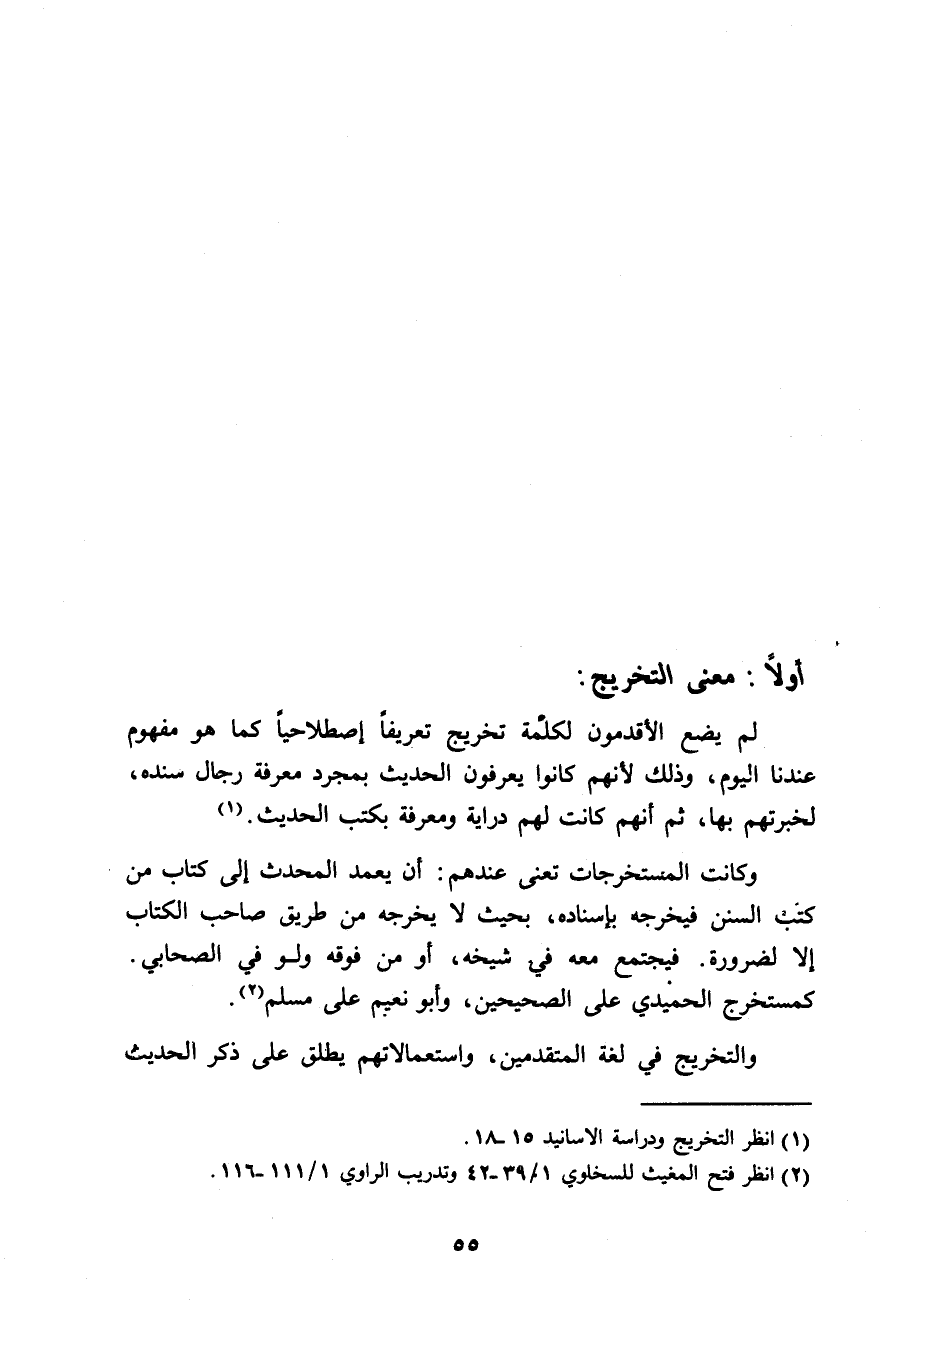 أولاً : معنى التخريج :
لم يضع الأقدمون لكلمة تخريج تعريفاً إصطلاحياً كما هو مفهوم
عندنا اليوم، وذلك لأنهم كانوا يعرفون الحديث بمجرد معرفة رجال سنده،
لخبرتهم بها، ثم أنهم كانت لهم دراية ومعرفة بكتب الحديث.(١)
وكانت المستخرجات تعنى عندهم: أن يعمد المحدث إلى كتاب من
كتب السنن فيخرجه بإسناده، بحيث لا يخرجه من طريق صاحب الكتاب
إلا لضرورة. فيجتمع معه في شيخه، أو من فوقه ولو في الصحابي.
كمستخرج الحميدي على الصحيحين، وأبو نعيم على مسلم(٢).
والتخريج في لغة المتقدمين، واستعمالاتهم يطلق على ذكر الحديث
(١) انظر التخريج ودراسة الاسانيد ١٥ـ١٨.
(٢) انظر فتح المغيث للسخاوي ٣٩/١ـ٤٢ وتدريب الراوي ١١١/١ـ١١٦.
٥٥